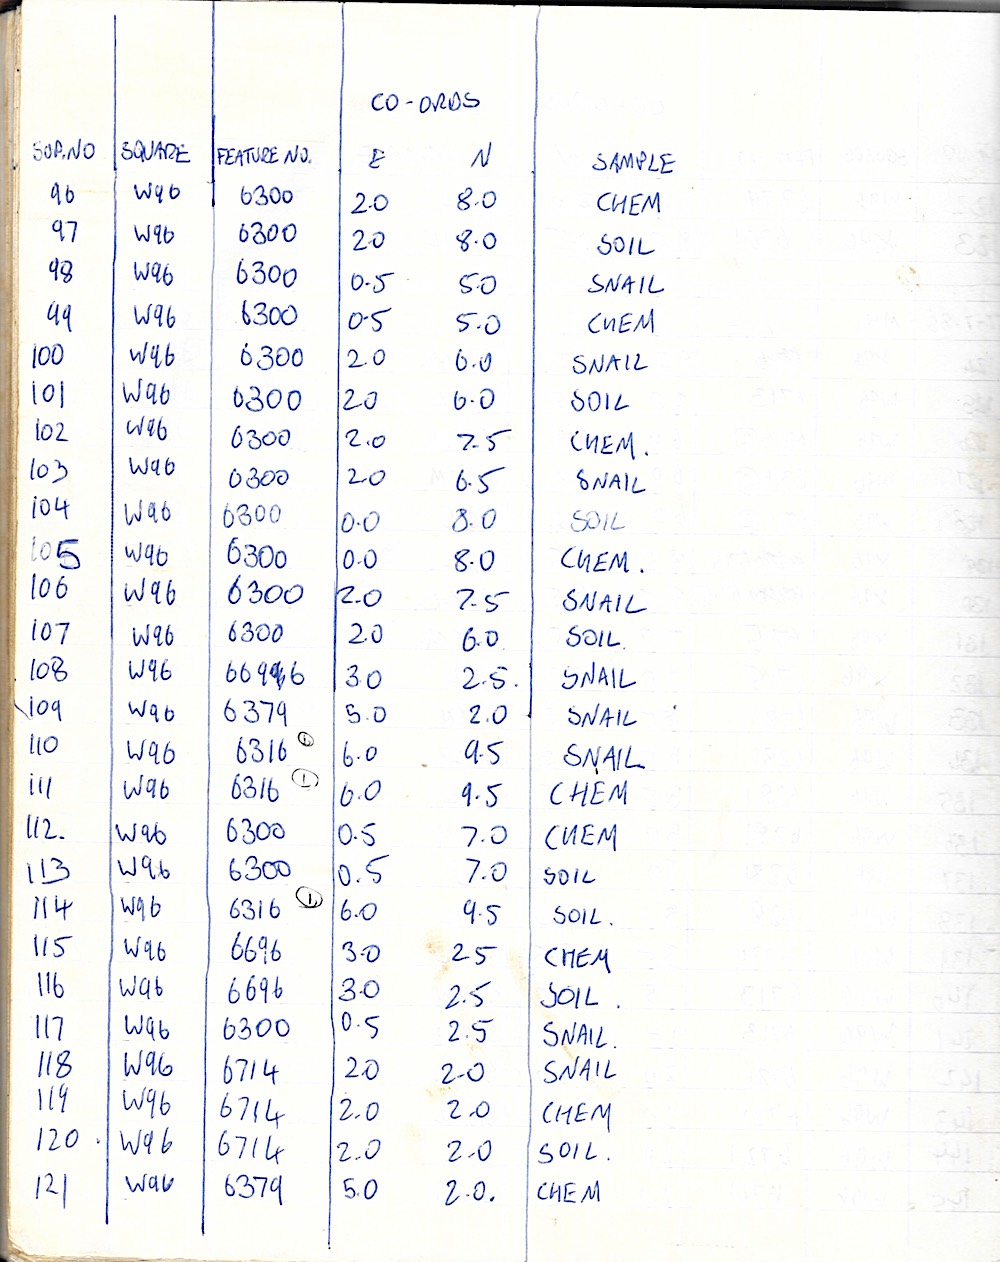 CO-ORDS
SOP.NO SQUARE FEATURE NO. E N SAMPLE
96 W96 6300 2.0 8.0 CHEM
97 W96 6300 2.0 8.0 SOIL
98 W96 6300 0.5 5.0 SNAIL
99 W96 6300 0.5 5.0 CHEM
100 W96 6300 2.0 6.0 SNAIL
101 W96 6300 2.0 6.0 SOIL
102 W96 6300 2.0 7.5 CHEM.
103 W96 6300 2.0 6.5 SNAIL
104 W96 6300 0.0 8.0 SOIL
105 W96 6300 0.0 8.0 CHEM.
106 W96 6300 2.0 7.5 SNAIL
107 W96 6300 2.0 6.0 SOIL.
108 W96 6696 3.0 2.5. SNAIL
109 W96 6379 5.0 2.0 SNAIL
110 W96 6316 ① 6.0 9.5 SNAIL
111 W96 6316 ① 6.0 9.5 CHEM
112. W96 6300 0.5 7.0 CHEM
113 W96 6300 0.5 7.0 SOIL
114 W96 6316 ① 6.0 9.5 SOIL.
115 W96 6696 3.0 2.5 CHEM
116 W96 6696 3.0 2.5 SOIL.
117 W96 6300 0.5 2.5 SNAIL.
118 W96 6714 2.0 2.0 SNAIL
119 W96 6714 2.0 2.0 CHEM
120. W96 6714 2.0 2.0 SOIL.
121 W96 6379 5.0 2.0. CHEM